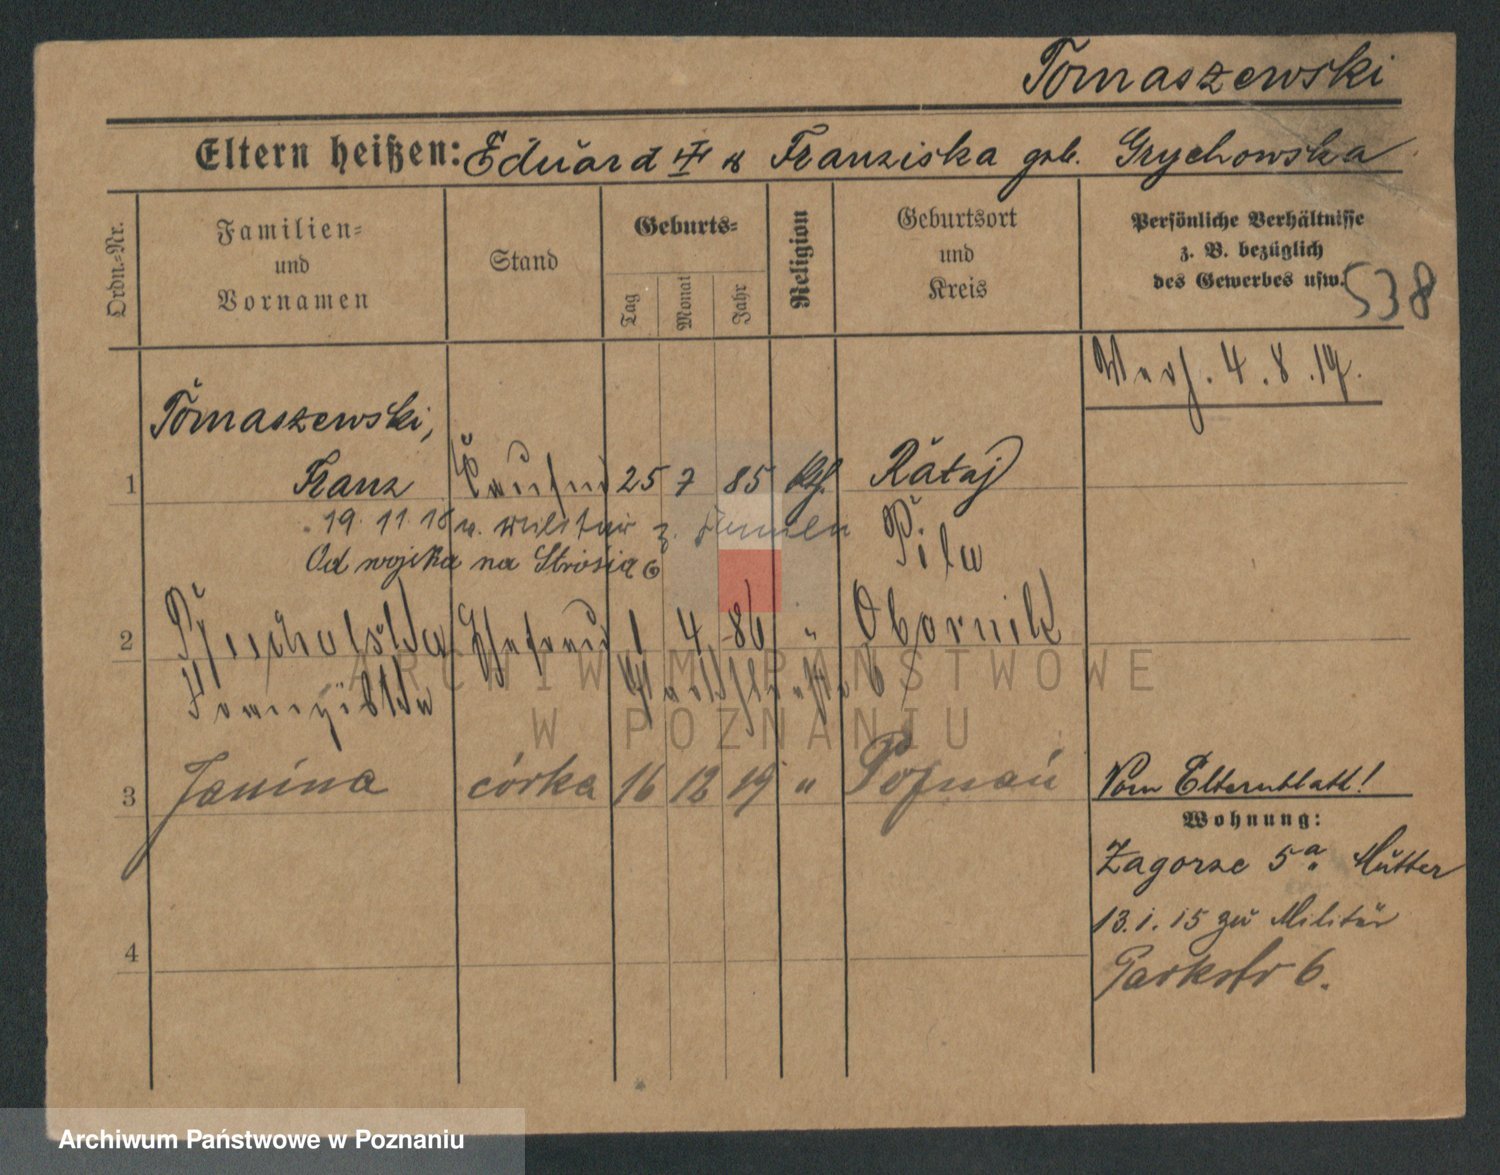 Tomaszewski
Eltern heißen: Eduard III & Franziska geb. Grychowska
Ordn.-Nr.
Familien-
und
Vornamen
Stand
Geburts-
Tag
Monat
Jahr
Religion
Geburtsort
und
Kreis
Persönliche Verhältnisse
z. B. bezüglich
des Gewerbes usw.
538
4.8.19.
Tomaszewski,
1 Franz 25 7 85 Rataj
19.11.18 v. Militär z.
Od wojska na Strosia 6
Pila
2 Ehefrau 1 4 86 " Obornik
3 Janina córka 16 12 19 " Poznań
Vom Elternblatt!
Wohnung:
Zagorze 5a Mutter
13.1.15 zu Militär
4
Parkstr 6.
ARCHIWUM PAŃSTWOWE
W POZNANIU
Archiwum Państwowe w Poznaniu